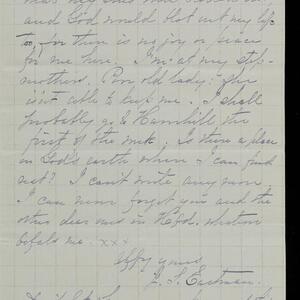 and God would blot out my life
too, for there is no joy or peace
for me here. I'm at my step-
mothers. Poor old lady! She
isn't able to keep me. I shall
probably go to Hamhill the
first of the week. Is there a place
in God's earth where I can find
rest? I can't write any more
I can never forget you and the
other dear ones in Hfd. whatever
befals me. xxx
Affy yours
J. S. Eastman.